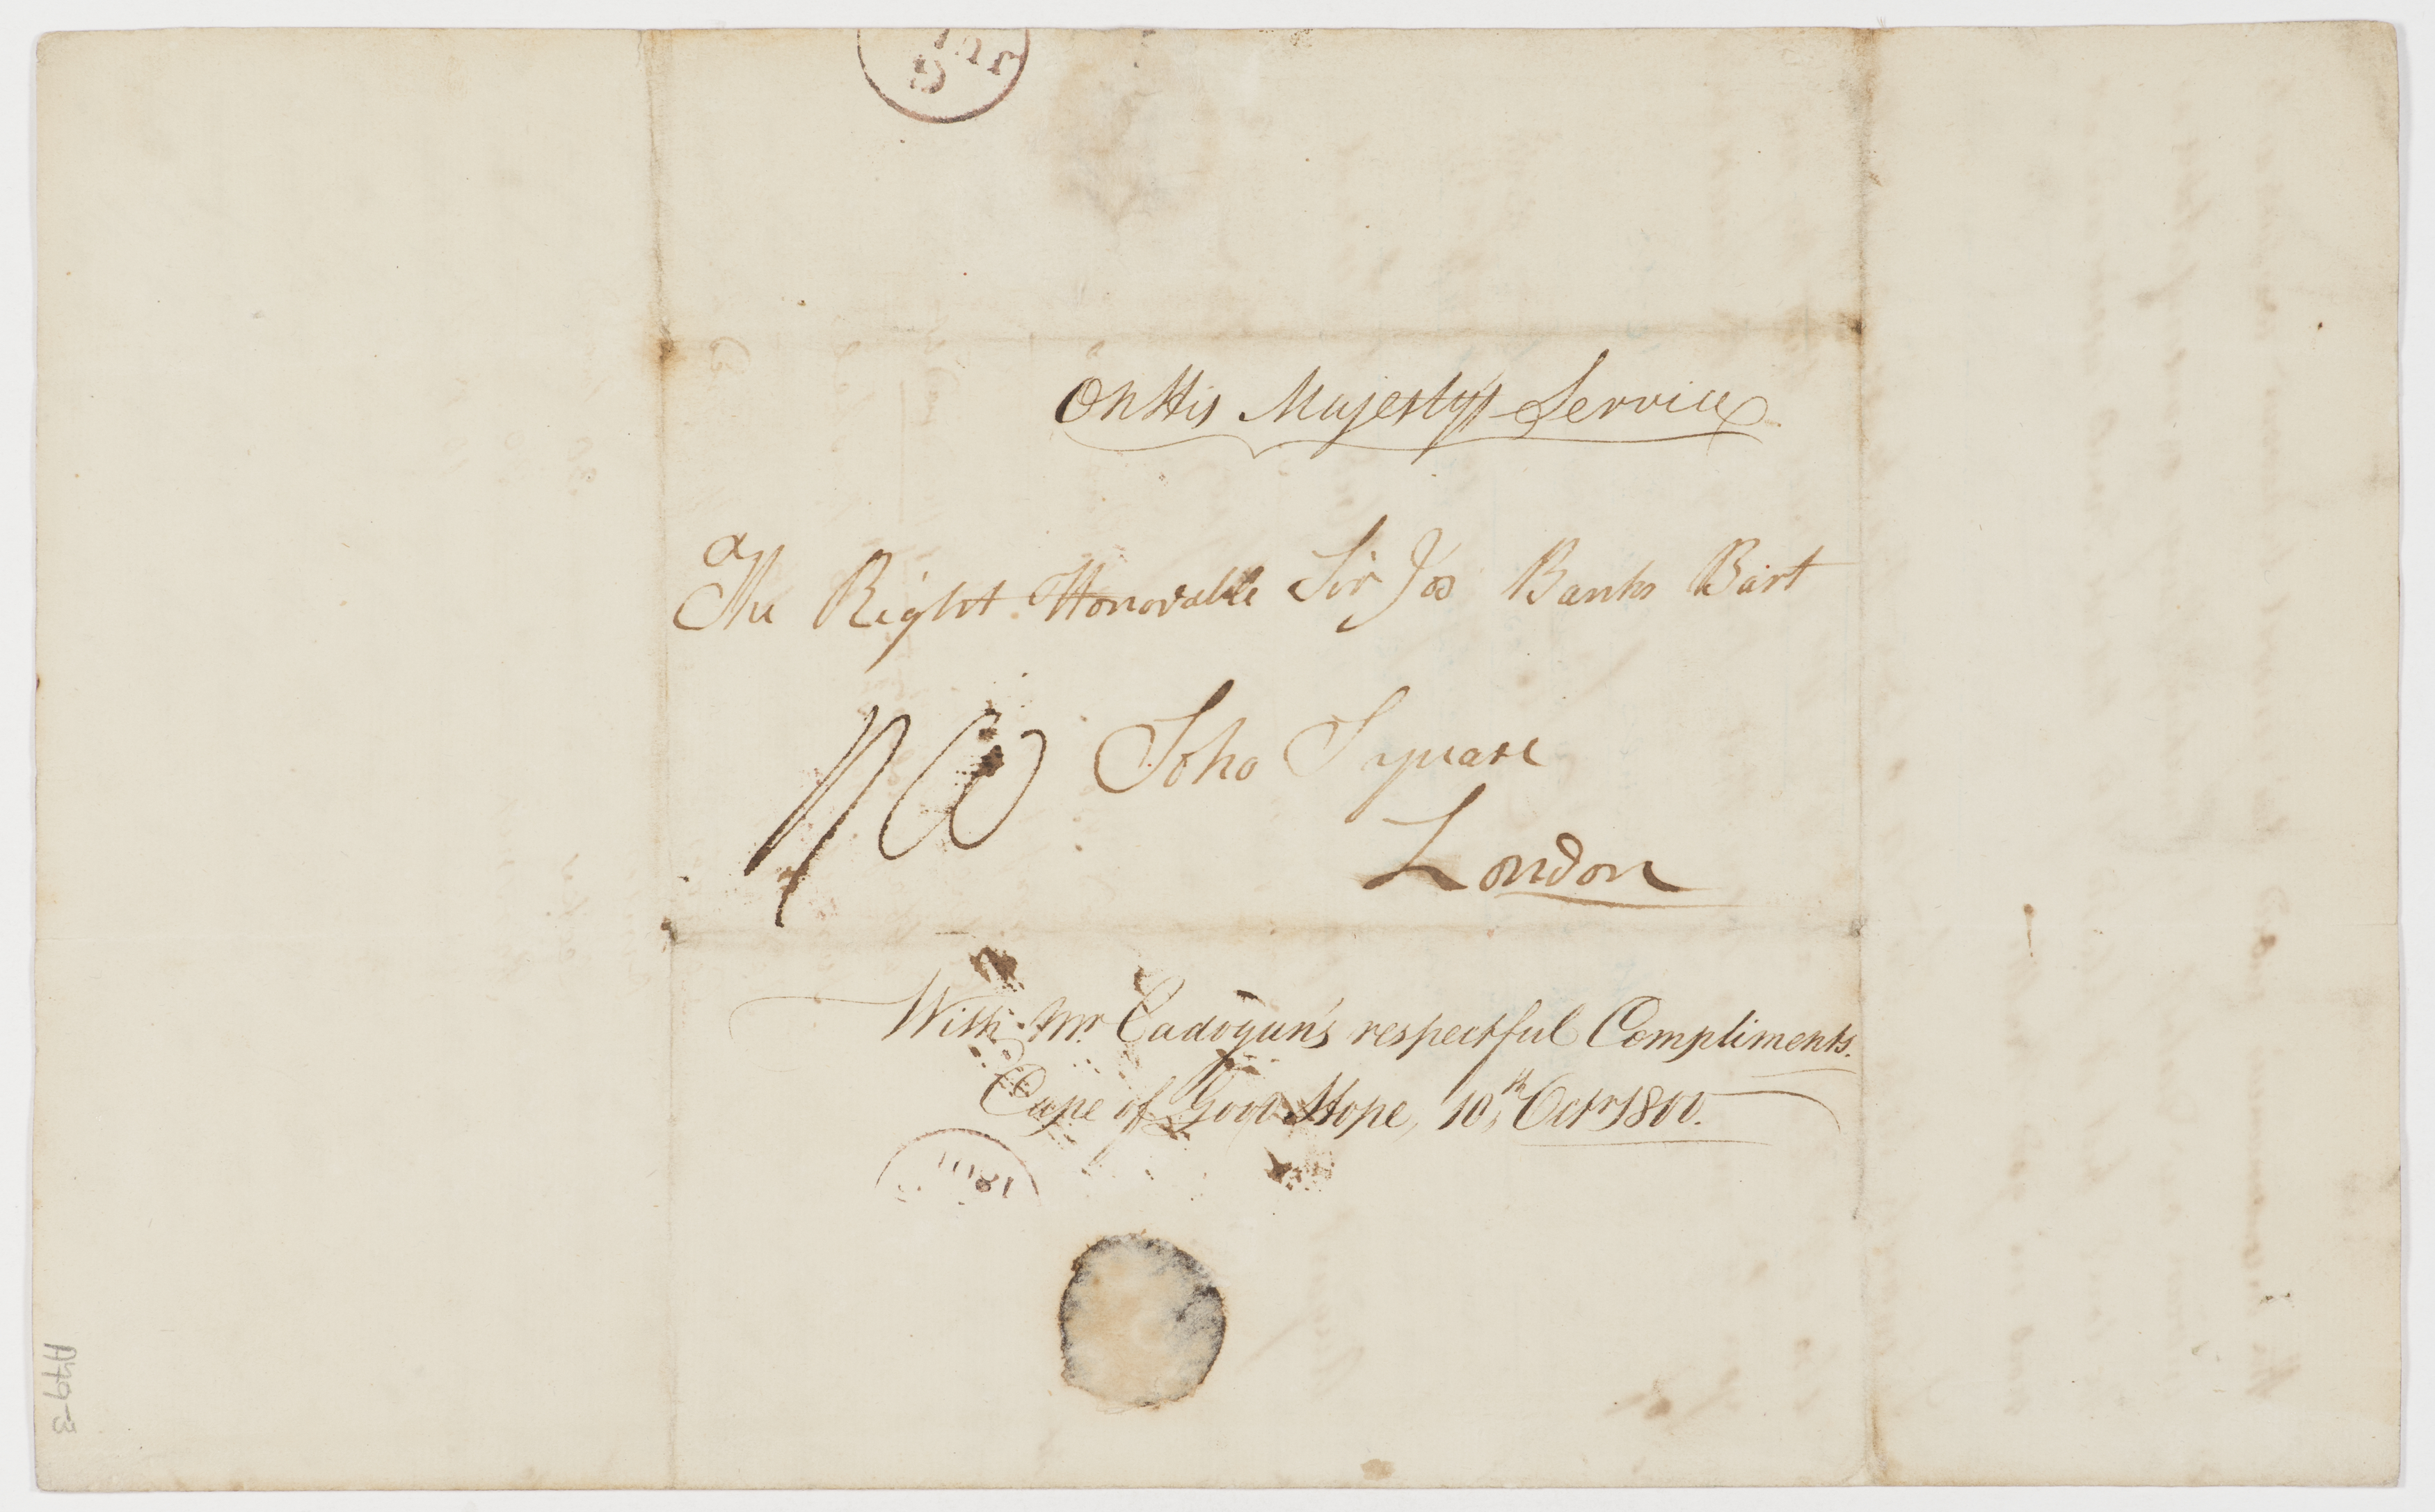 On His Majesty's Service
The Right Honorable Sir Jos Banks Bart
Soho Square
London
With Mr. Cadogan's respectful Compliments.
Cape of Good Hope, 10th, Octr 1800.
1801
A79-3